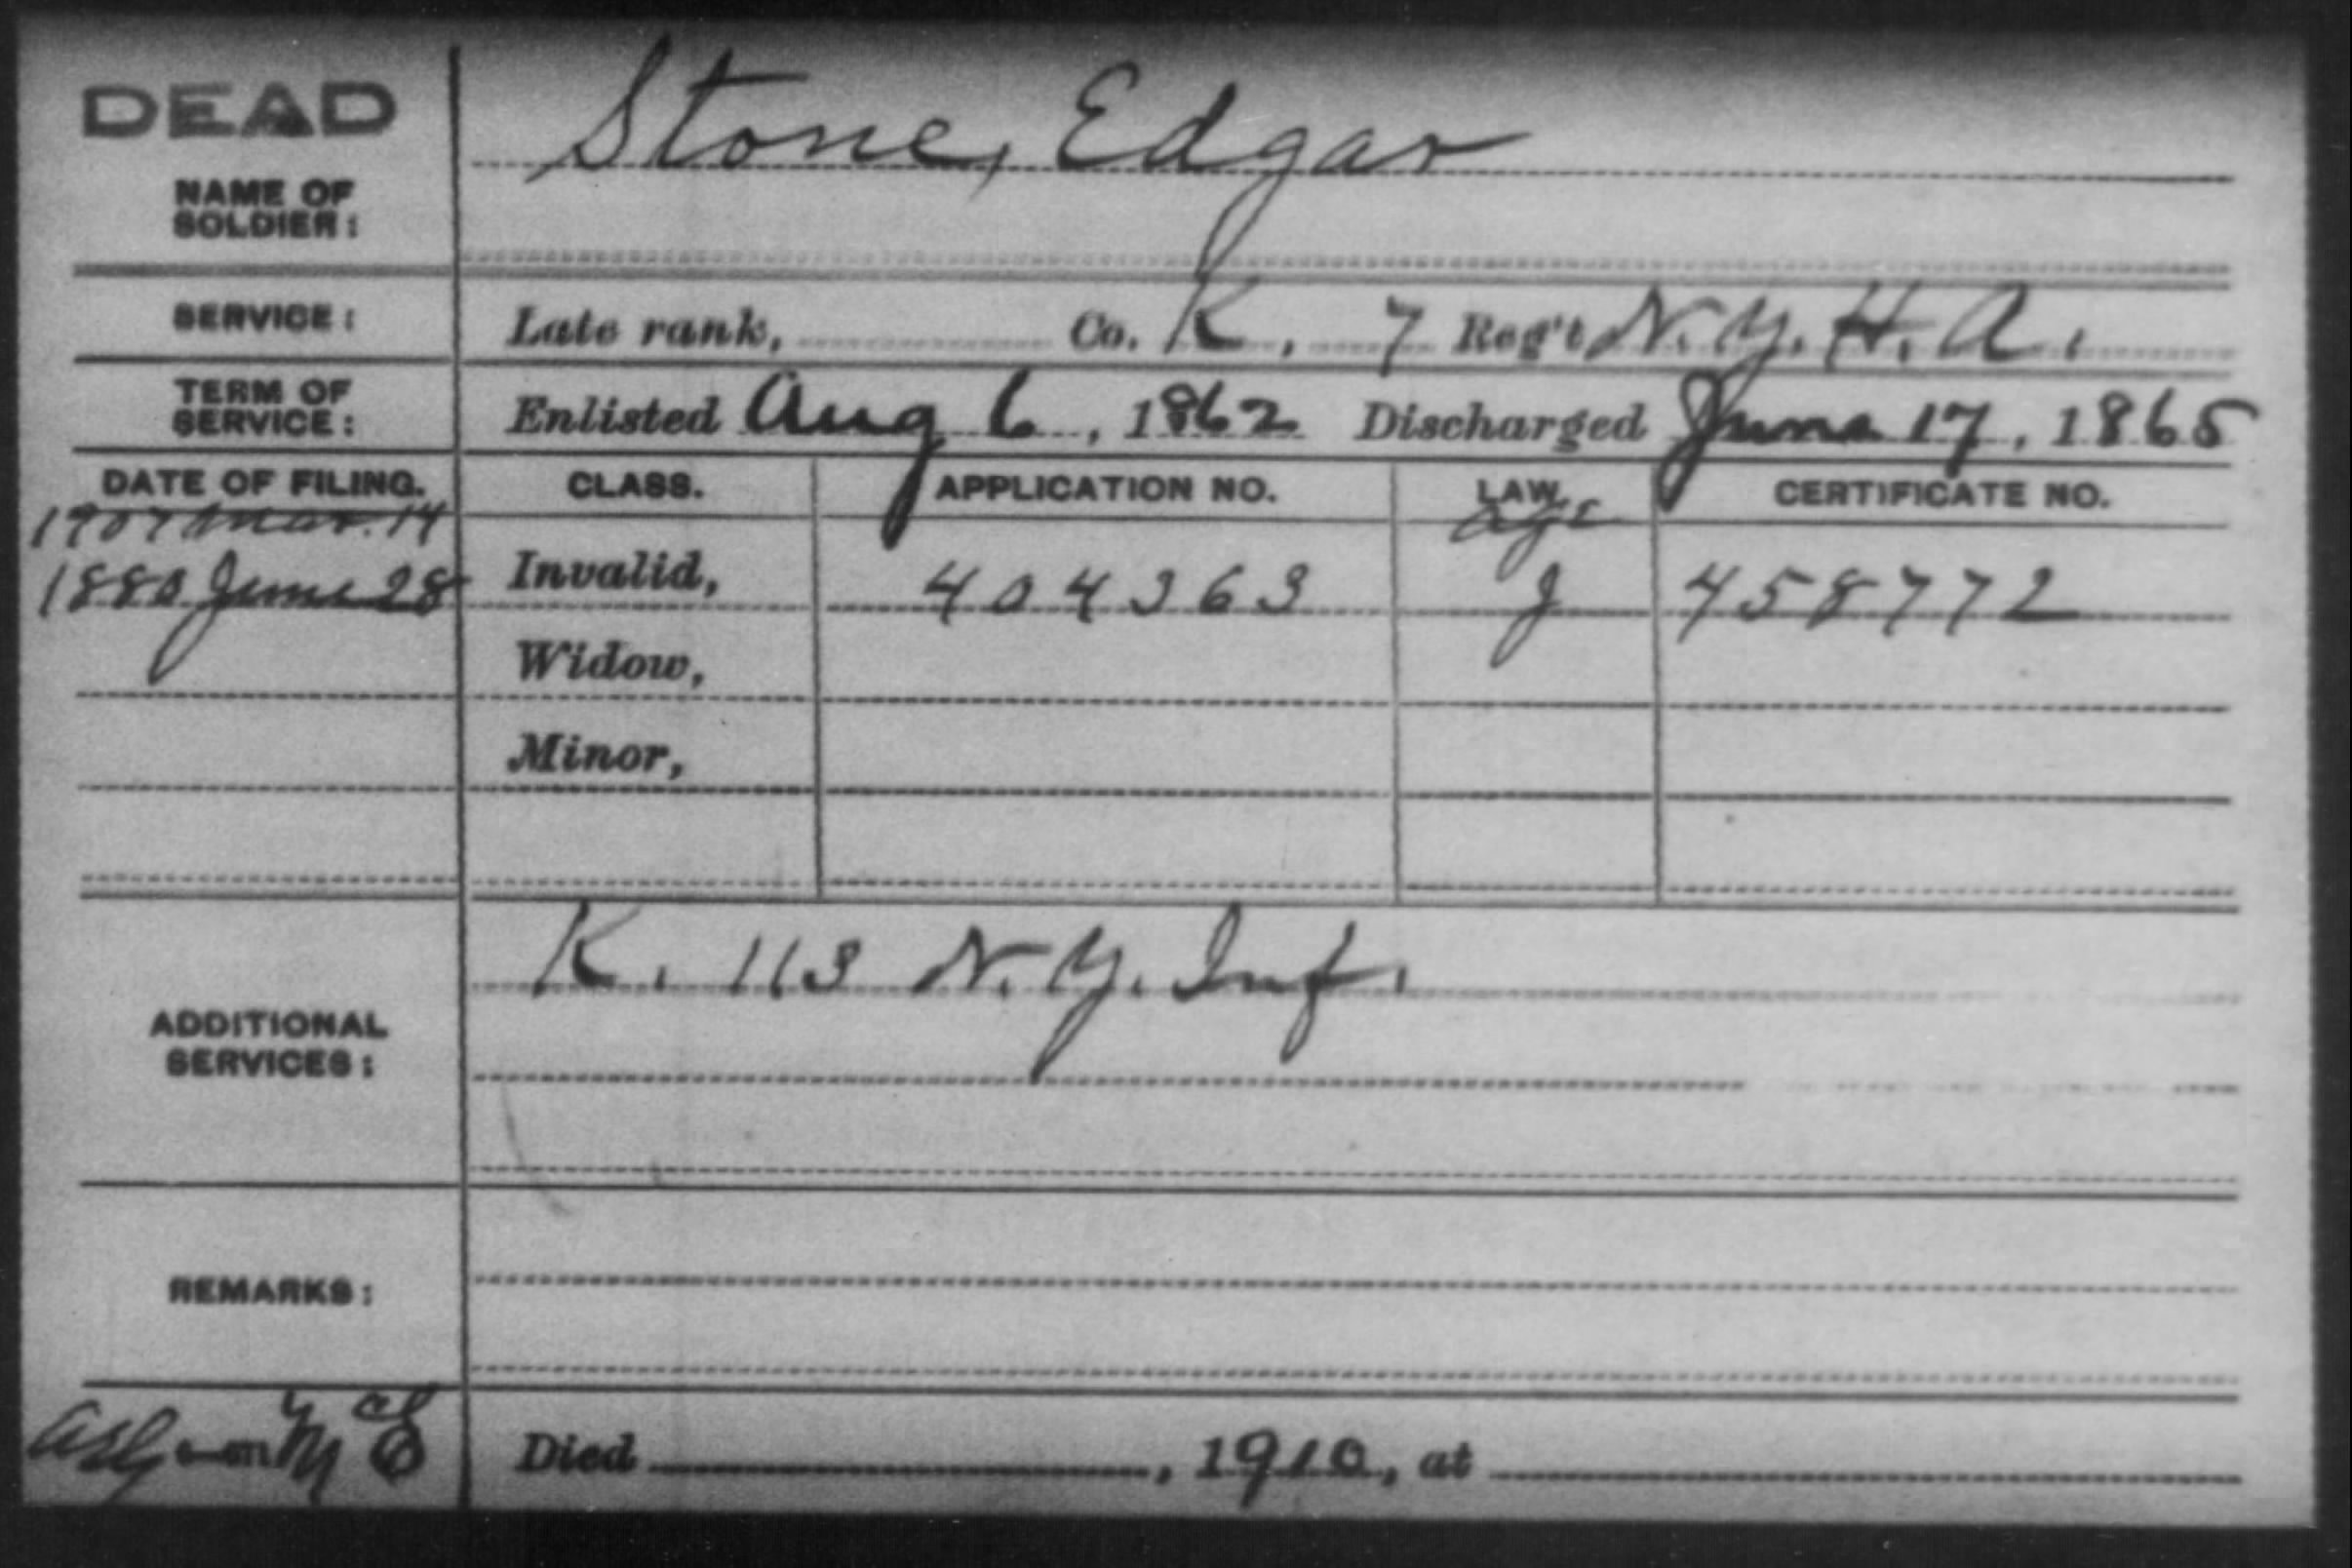 DEAD
Stone, Edgar
NAME OF
SOLDIER:
SERVICE: Late rank, Co. K, 7 Reg't N.Y.H.A.
TERM OF
SERVICE: Enlisted Aug 6, 1862 Discharged June 17, 1865
DATE OF FILING. CLASS. APPLICATION NO. LAW. CERTIFICATE NO.
1907 Mar. 14 Age
1880 June 28 Invalid, 404363 J 458772
Widow,
Minor,
K. 113 N.Y. Inf.
ADDITIONAL
SERVICES:
REMARKS:
Died , 1910, at